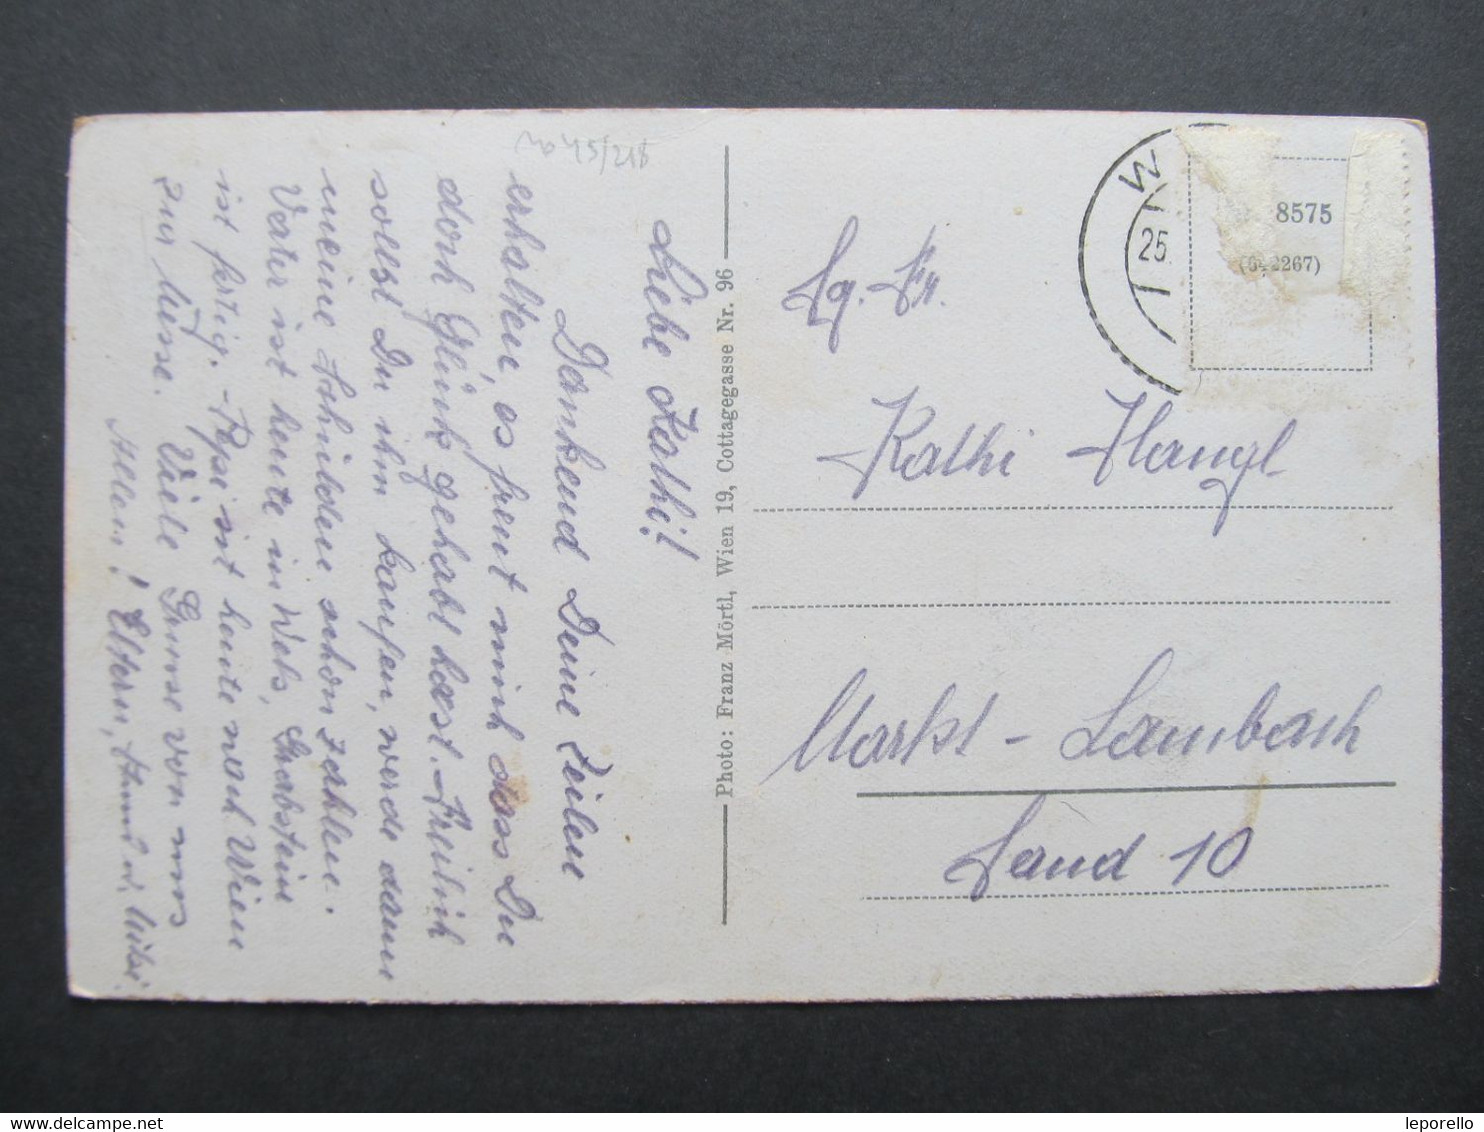 Liebe Kathi!
Dankend Deine Zeilen
erhalten, es freut mich dass Du
doch Glück gehabt hast. Freilich
sollst Du ihm kaufen, werde dann
meine Schulden schon zahlen.
Vater ist heute in Wels, Grabstein
ist fertig. Pepi ist heute nach Wien
zur Musse. Viele Grüsse von uns
Allen! Eltern,
Photo: Franz Mörtl, Wien 19, Cottagegasse Nr. 96
W
25.
8575
Fr.
Kathi Hangl
Markt - Lambach
Land 10
leporello